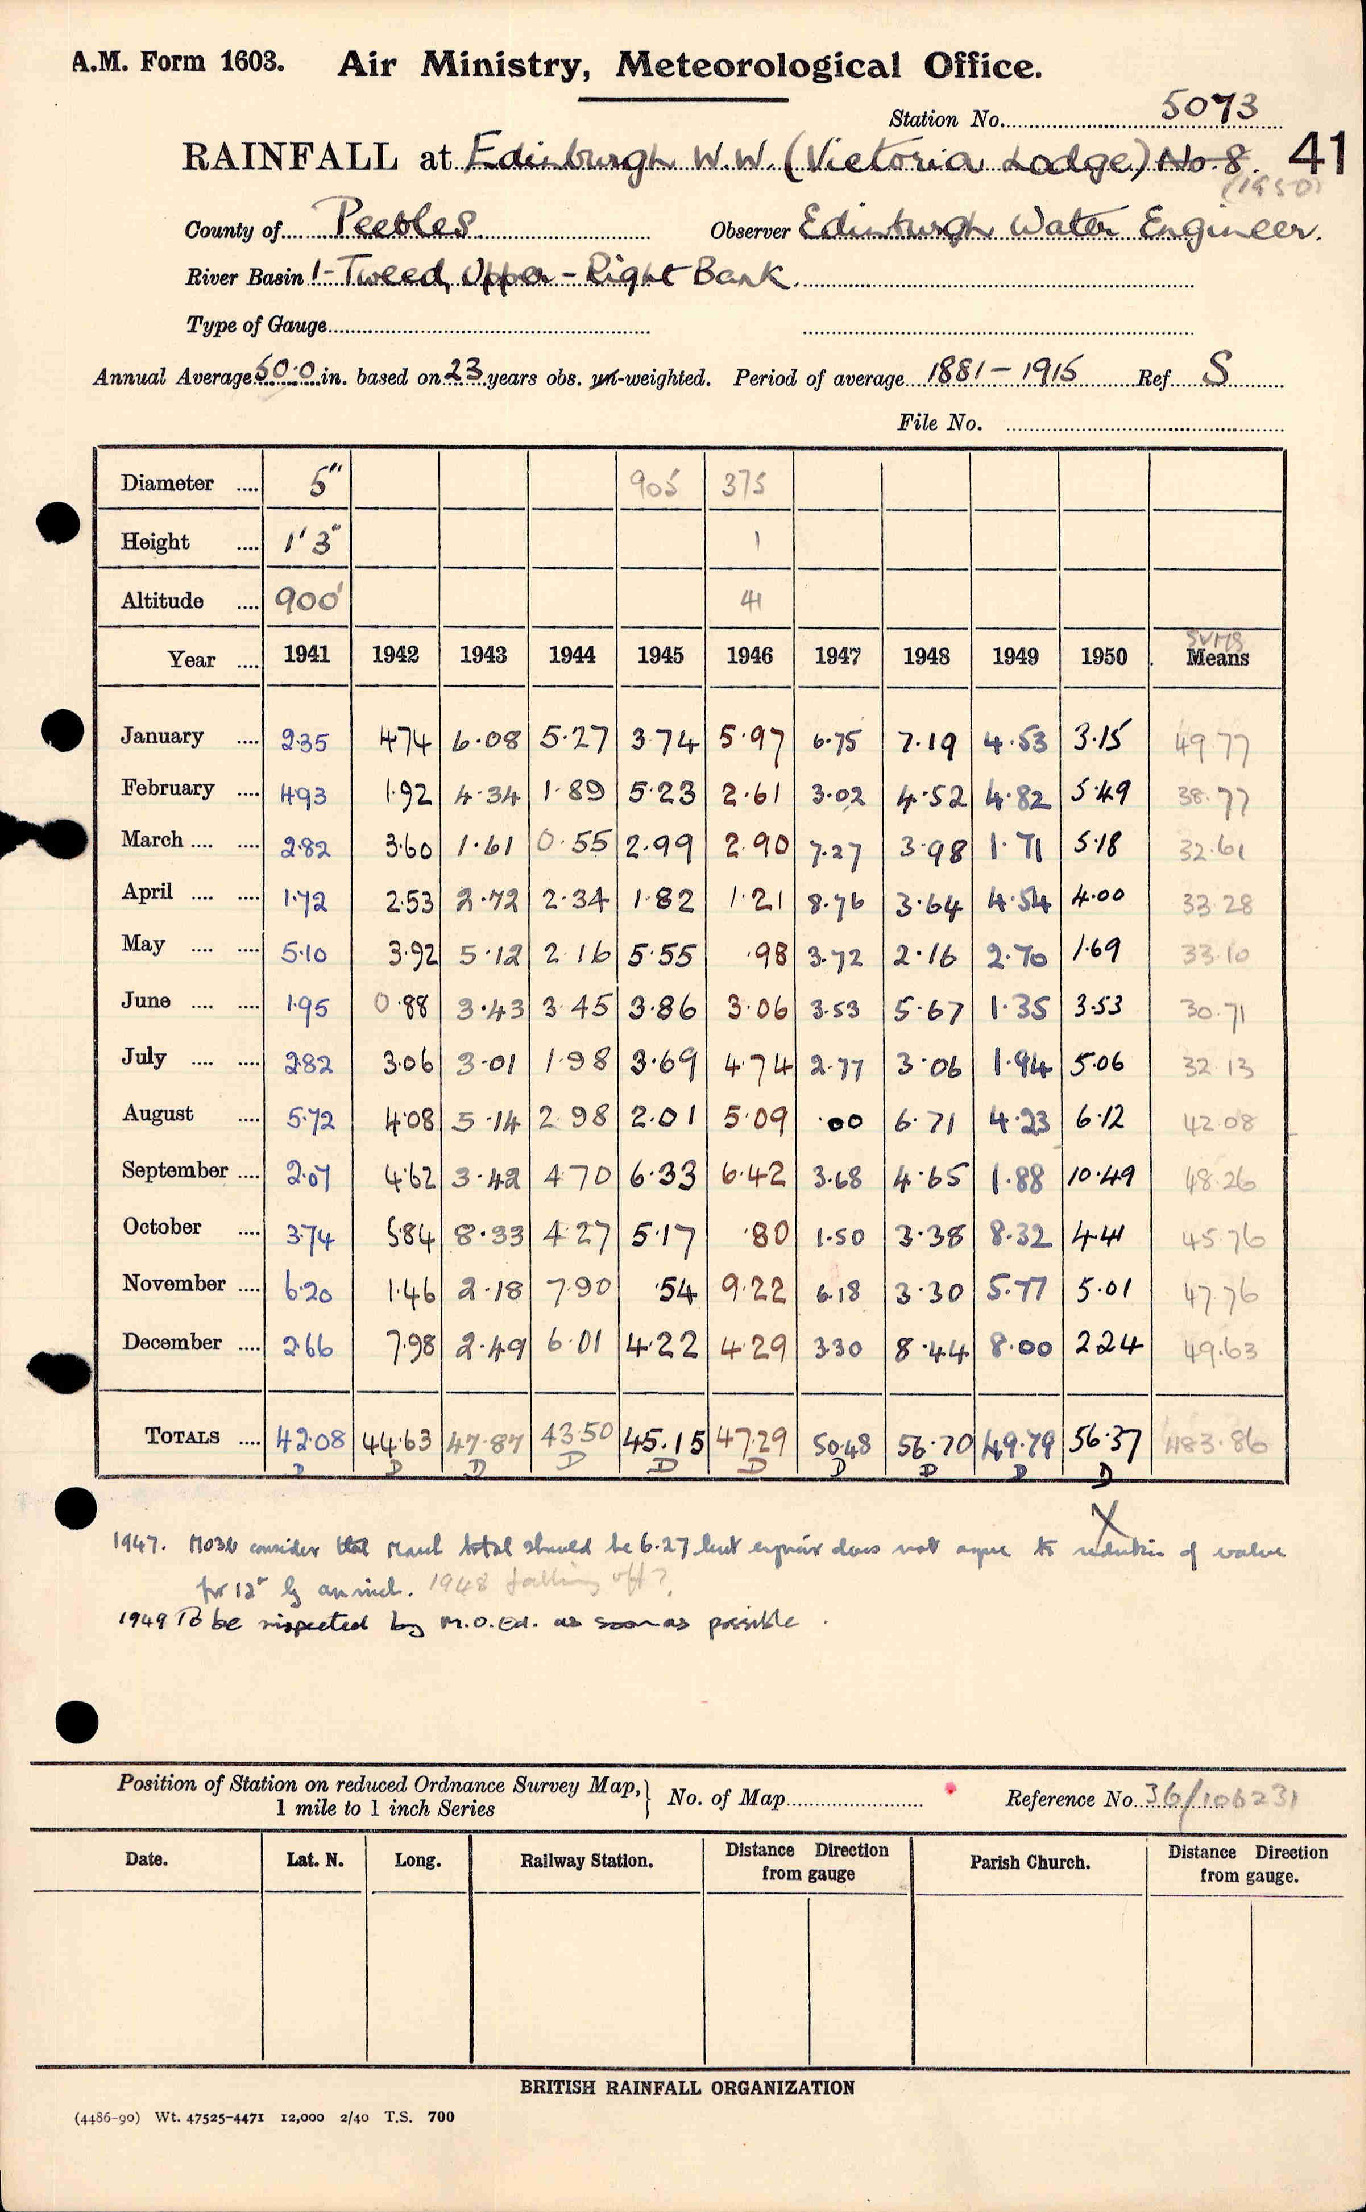 A.M. Form 1603. Air Ministry, Meteorological Office.
Station No. 5073
RAINFALL at Edinburgh W.W. (Victoria Lodge) No. 8. 41
(1950)
County of Peebles Observer Edinburgh Water Engineer.
River Basin 1-Tweed, Upper - Right Bank.
Type of Gauge
Annual Average 50.0 in. based on 23 years obs. un-weighted. Period of average 1881-1915 Ref S
File No.
Diameter .... 5" 905 375
Height .... 1' 3" 1
Altitude .... 900' 41
SUMS
Year .... 1941 1942 1943 1944 1945 1946 1947 1948 1949 1950 Means
January .... 2.35 4.74 6.08 5.27 3.74 5.97 6.75 7.19 4.53 3.15 49.77
February .... 4.93 1.92 4.34 1.89 5.23 2.61 3.02 4.52 4.82 5.49 38.77
March .... .... 2.82 3.60 1.61 0.55 2.99 2.90 7.27 3.98 1.71 5.18 32.61
April .... .... 1.72 2.53 2.72 2.34 1.82 1.21 8.76 3.64 4.54 4.00 33.28
May .... .... 5.10 3.92 5.12 2.16 5.55 .98 3.72 2.16 2.70 1.69 33.10
June .... .... 1.95 0.88 3.43 3.45 3.86 3.06 3.53 5.67 1.35 3.53 30.71
July .... .... 2.82 3.06 3.01 1.98 3.69 4.74 2.77 3.06 1.94 5.06 32.13
August .... 5.72 4.08 5.14 2.98 2.01 5.09 .00 6.71 4.23 6.12 42.08
September .... 2.07 4.62 3.42 4.70 6.33 6.42 3.68 4.65 1.88 10.49 48.26
October .... 3.74 5.84 8.33 4.27 5.17 .80 1.50 3.38 8.32 4.41 45.76
November .... 6.20 1.46 2.18 7.90 .54 9.22 6.18 3.30 5.77 5.01 47.76
December .... 2.66 7.98 2.49 6.01 4.22 4.29 3.30 8.44 8.00 2.24 49.63
TOTALS .... 42.08 44.63 47.87 43.50 45.15 47.29 50.48 56.70 49.79 56.37 483.86
D D D D D D D D D D
X
1947. MO3b consider that March total should be 6.27 but does not agree to reduction of value
for 12" by an inch. 1948 falling off?
1949 To be inspected by M.O.Ed. as soon as possible.
Position of Station on reduced Ordnance Survey Map, 1 mile to 1 inch Series } No. of Map Reference No. 36/106231
Date. Lat. N. Long. Railway Station. Distance Direction from gauge Parish Church. Distance Direction from gauge.
BRITISH RAINFALL ORGANIZATION
(4486-90) Wt. 47525-4471 12,000 2/40 T.S. 700